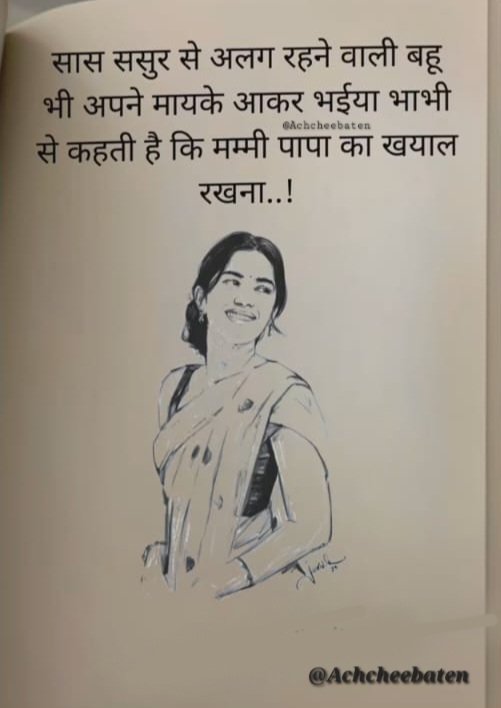 सास ससुर से अलग रहने वाली बहू
भी अपने मायके आकर भईया भाभी
@Achcheebaten
से कहती है कि मम्मी पापा का खयाल
रखना..!
@Achcheebaten